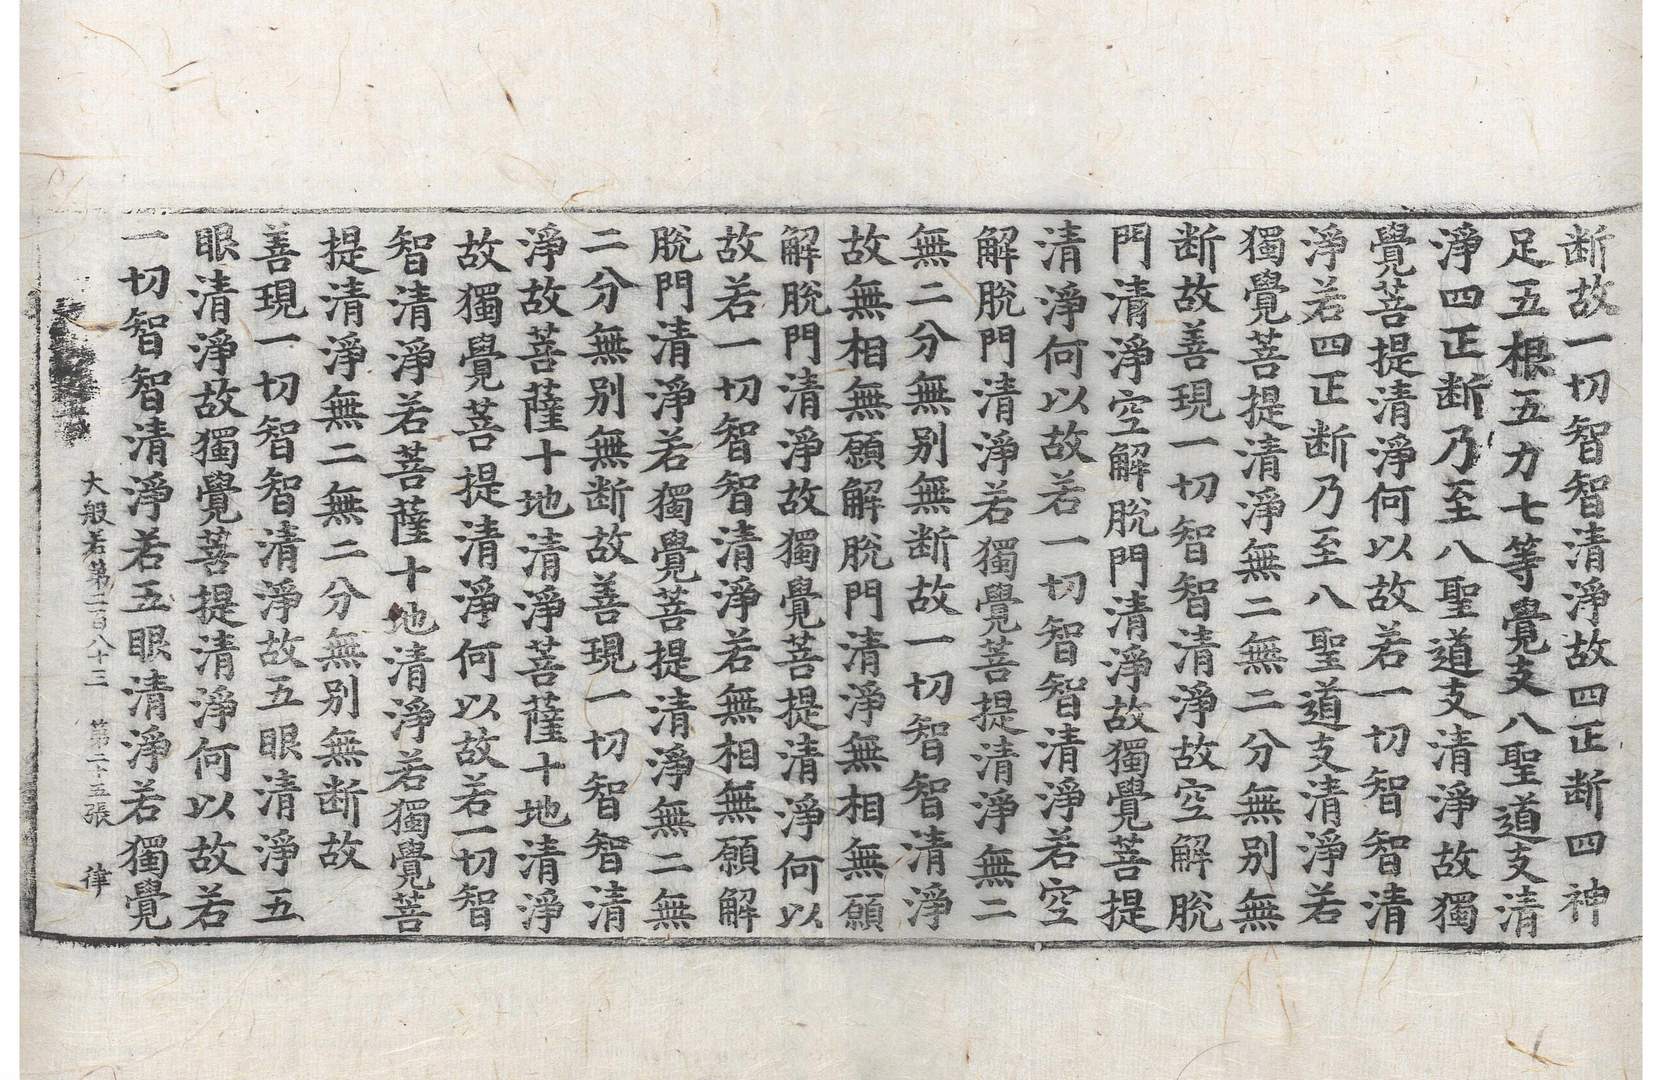 断故一切智智清淨故四正断四神
足五根五力七等覺支八聖道支清
淨四正断乃至八聖道支清淨故獨
覺菩提清淨何以故若一切智智清
淨若四正断乃至八聖道支清淨若
獨覺菩提清淨無二無二分無別無
断故善現一切智智清淨故空解脫
門清淨空解脫門清淨故獨覺菩提
清淨何以故若一切智智清淨若空
解脫門清淨若獨覺菩提清淨無二
無二分無別無断故一切智智清淨
故無相無願解脫門清淨無相無願
解脫門清淨故獨覺菩提清淨何以
故若一切智智清淨若無相無願解
脫門清淨若獨覺菩提清淨無二無
二分無別無断故善現一切智智清
淨故菩薩十地清淨菩薩十地清淨
故獨覺菩提清淨何以故若一切智
智清淨若菩薩十地清淨若獨覺菩
提清淨無二無二分無別無断故
善現一切智智清淨故五眼清淨五
眼清淨故獨覺菩提清淨何以故若
一切智智清淨若五眼清淨若獨覺
大般若第二百八十三 第二十五張 律